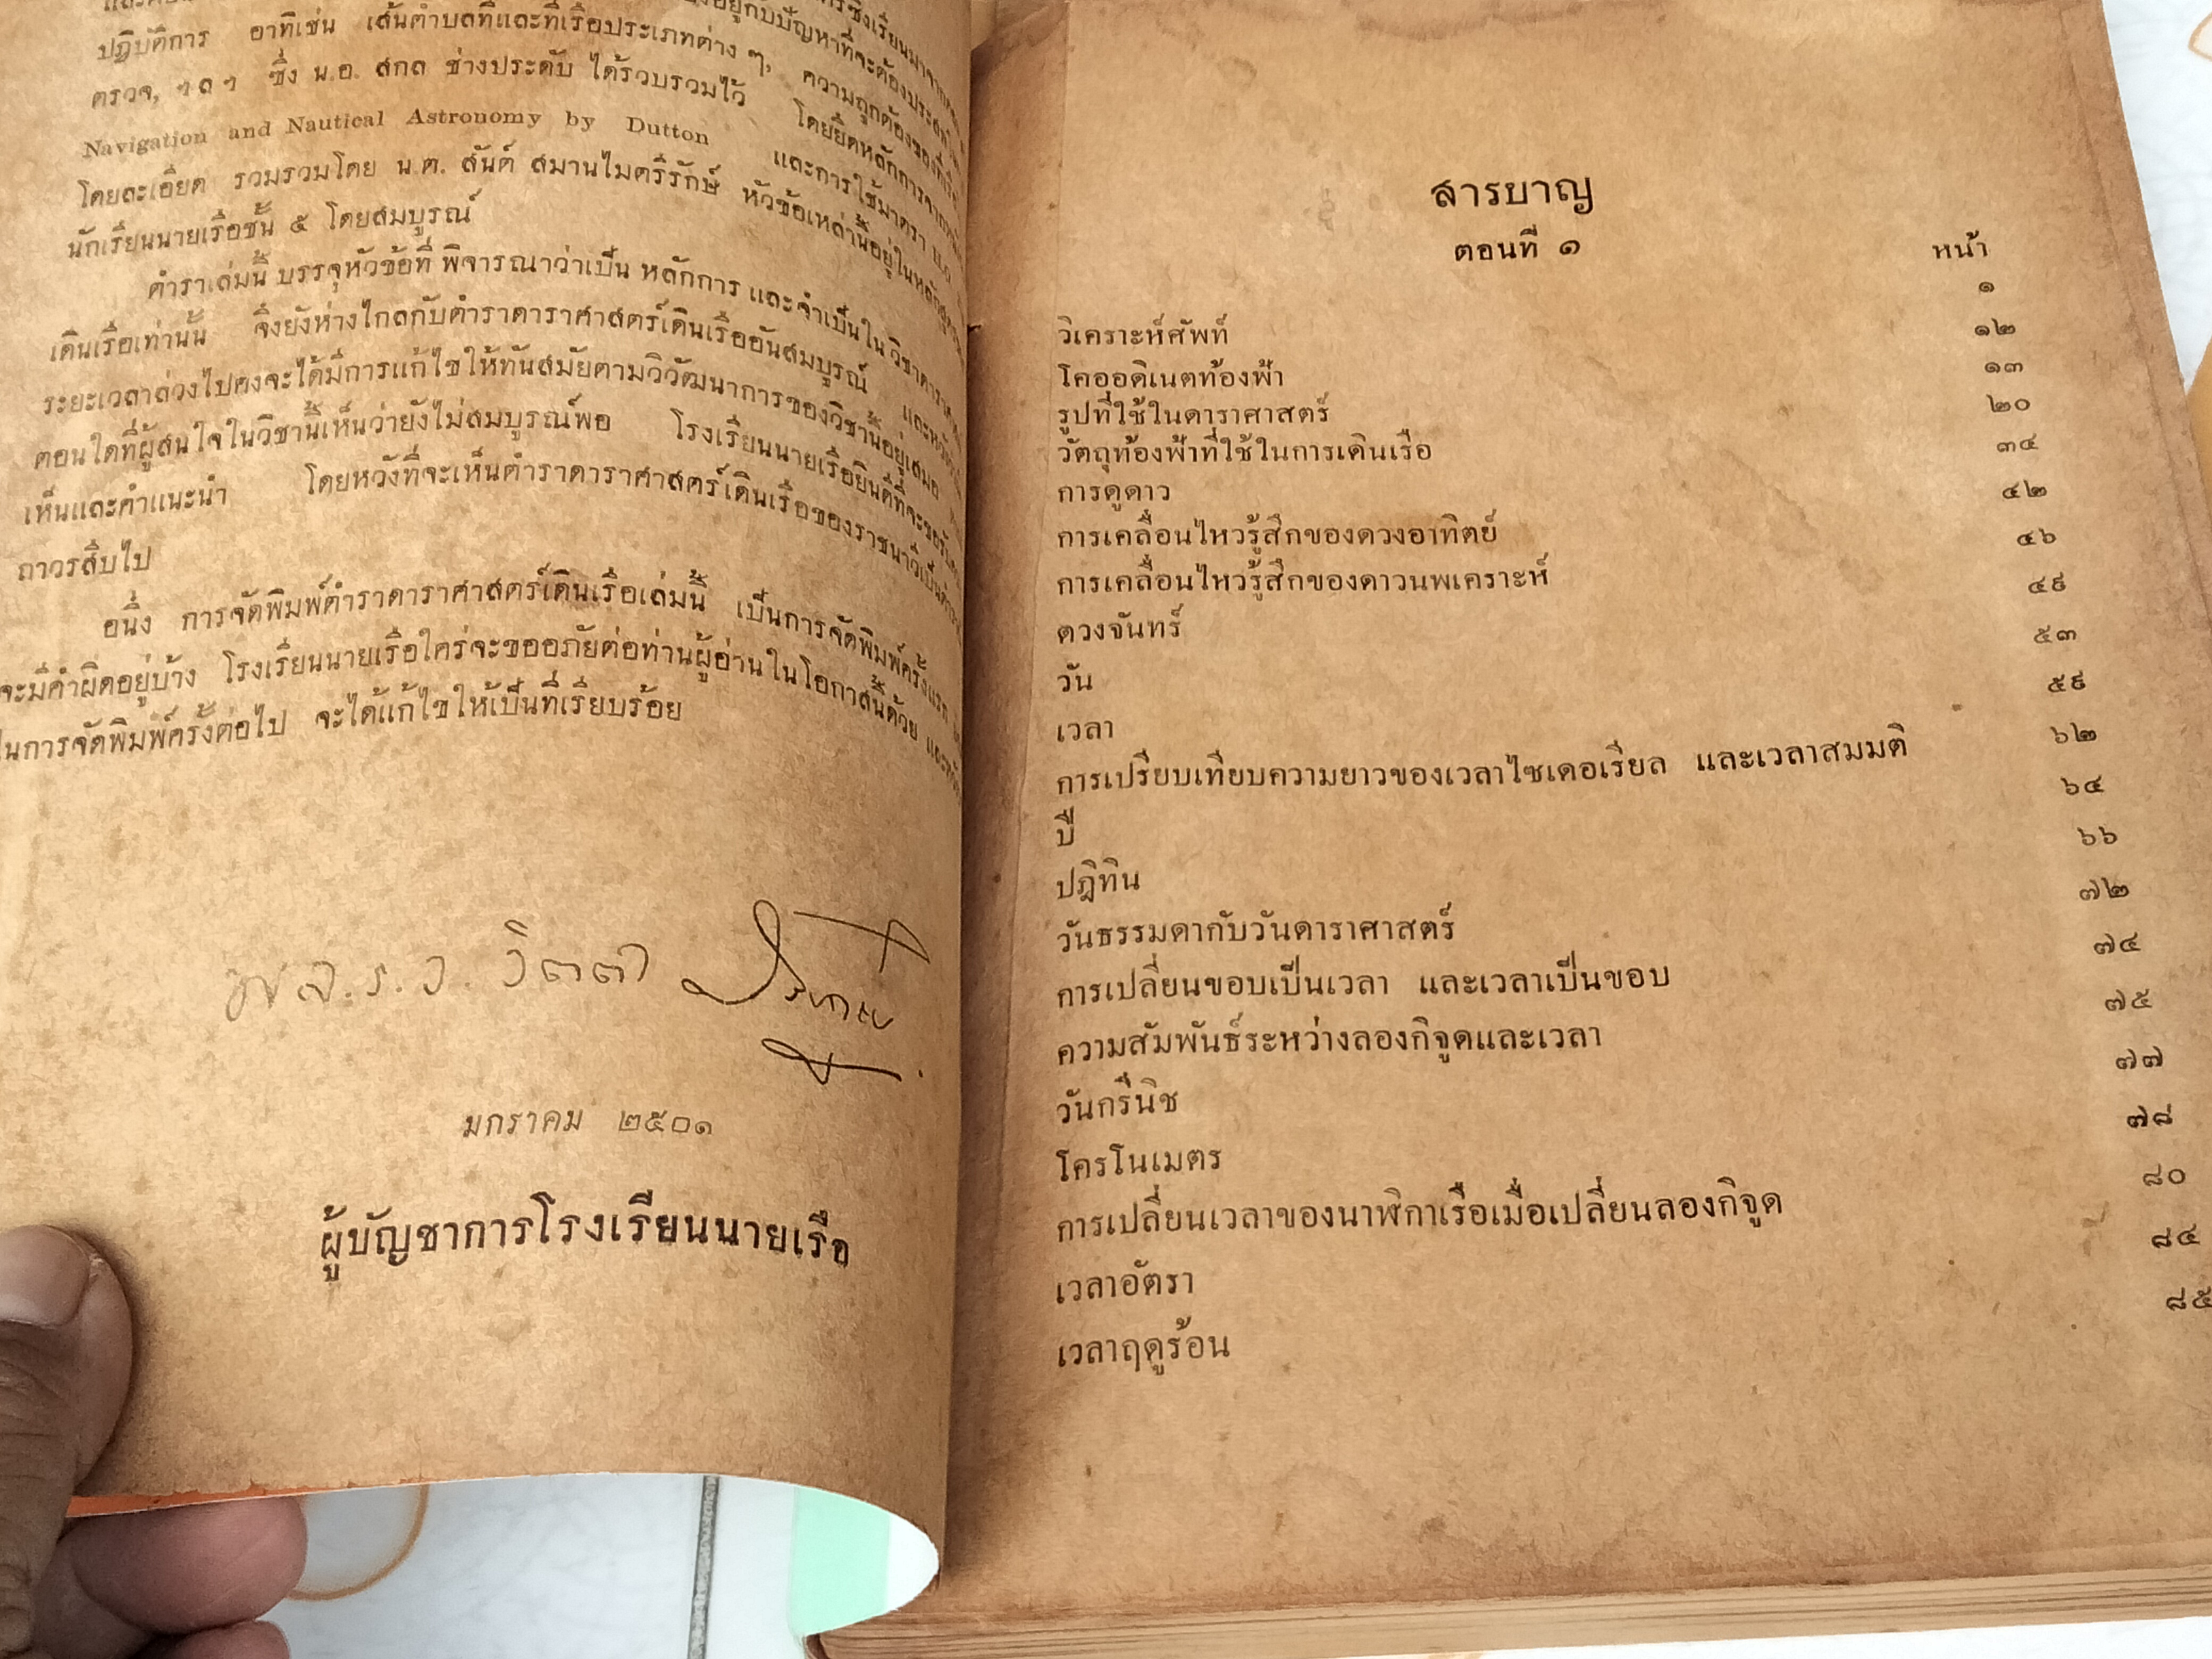 ปฏิบัติการ อาทิเช่น เส้นตำบลที่และที่เรือประเภทต่าง ๆ, ความถูกต้องของที่เรือ
ตรวจ, ฯลฯ ซึ่ง น.อ. สกล ช่างประดับ ได้รวบรวมไว้ โดยยึดหลักการจาก
Navigation and Nautical Astronomy by Dutton และการใช้มาตรา
โดยละเอียด รวมรวมโดย น.ต. สันต์ สมานไมตรีรักษ์ หัวข้อเหล่านี้อยู่ในหลักสูตร
นักเรียนนายเรือชั้น ๕ โดยสมบูรณ์
ตำราเล่มนี้ บรรจุหัวข้อที่ พิจารณาว่าเป็น หลักการ และจำเป็นใน วิชาดาราศาสตร์
เดินเรือเท่านั้น จึงยังห่างไกลกับตำราดาราศาสตร์เดินเรืออันสมบูรณ์
ระยะเวลาล่วงไปคงจะได้มีการแก้ไขให้ทันสมัยตามวิวัฒนาการของวิชานี้อยู่เสมอ
ตอนใดที่ผู้สนใจในวิชานี้เห็นว่ายังไม่สมบูรณ์พอ โรงเรียนนายเรือยินดีที่จะขอรับ
เห็นและคำแนะนำ โดยหวังที่จะเห็นตำราดาราศาสตร์เดินเรือของราชนาวีเป็น
ถาวรสืบไป
อนึ่ง การจัดพิมพ์ตำราดาราศาสตร์เดินเรือเล่มนี้ เป็นการจัดพิมพ์ครั้งแรก
จะมีคำผิดอยู่บ้าง โรงเรียนนายเรือใคร่จะขออภัยต่อท่านผู้อ่านในโอกาสนี้ด้วย และ
ในการจัดพิมพ์ครั้งต่อไป จะได้แก้ไขให้เป็นที่เรียบร้อย
มกราคม ๒๕๐๑
ผู้บัญชาการโรงเรียนนายเรือ
สารบาญ
ตอนที่ ๑
หน้า
วิเคราะห์ศัพท์ ๑
โคออดิเนตท้องฟ้า ๑๒
รูปที่ใช้ในดาราศาสตร์ ๑๓
วัตถุท้องฟ้าที่ใช้ในการเดินเรือ ๒๐
การดูดาว ๓๔
การเคลื่อนไหวรู้สึกของดวงอาทิตย์ ๔๒
การเคลื่อนไหวรู้สึกของดาวนพเคราะห์ ๔๖
ดวงจันทร์ ๔๙
วัน ๕๓
เวลา ๕๙
การเปรียบเทียบความยาวของเวลาไซเดอเรียล และเวลาสมมติ ๖๒
ปี ๖๔
ปฎิทิน ๖๖
วันธรรมดากับวันดาราศาสตร์ ๗๒
การเปลี่ยนขอบเป็นเวลา และเวลาเป็นขอบ ๗๔
ความสัมพันธ์ระหว่างลองกิจูดและเวลา ๗๕
วันกรีนิช ๗๗
โครโนเมตร ๗๘
การเปลี่ยนเวลาของนาฬิกาเรือเมื่อเปลี่ยนลองกิจูด ๘๐
เวลาอัตรา ๘๔
เวลาฤดูร้อน ๘๕